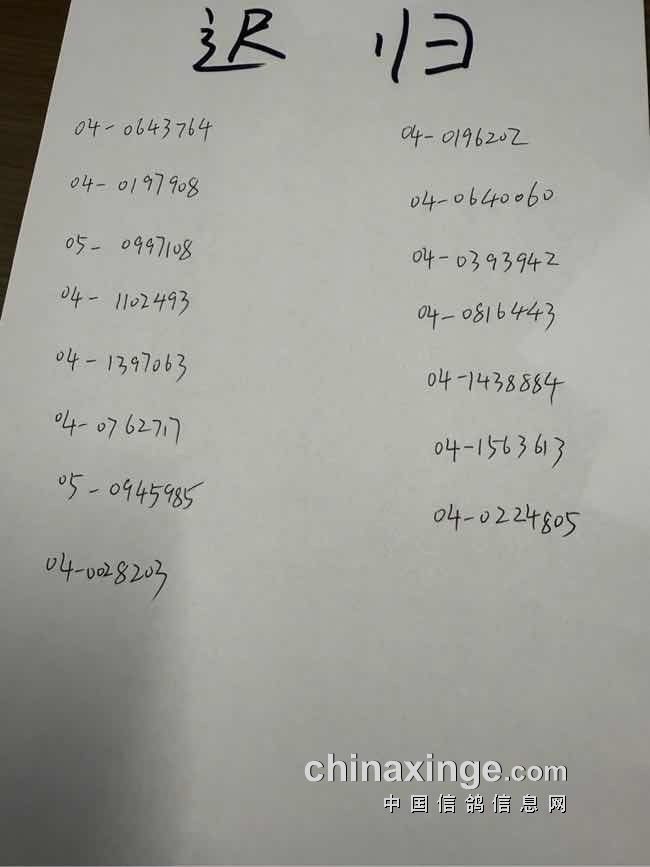 迟 归
04-0643764
04-0197908
05-0997108
04-1102493
04-1397063
04-0762717
05-0945985
04-0028203
04-0196202
04-0640060
04-0393942
04-0816443
04-1438884
04-1563613
04-0224805
chinaxinge.com
中国信鸽信息网